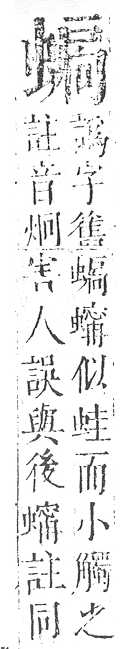 譌字舊似蛙而小觸之
註音炯害人誤與後註同